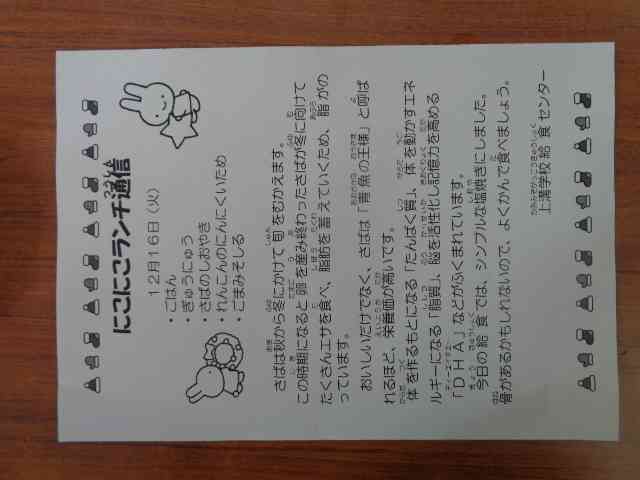 にこにこランチ通信
12月16日（火）
・ごはん
・ぎゅうにゅう
・さばのしおやき
・れんこんのにんにくいため
・ごまみそしる
さばは秋から冬にかけて旬をむかえます。
この時期になると卵を産み終わったさばが冬に向けて
たくさんエサを食べ、脂肪を蓄えていくため、脂がの
っています。
おいしいだけでなく、さばは「青魚の王様」と呼ば
れるほど、栄養価が高いです。
体を作るもとになる「たんぱく質」、体を動かすエネ
ルギーになる「脂質」、脳を活性化し記憶力を高める
「DHA」などがふくまれています。
今日の給食では、シンプルな塩焼きにしました。
骨があるかもしれないので、よくかんで食べましょう。
上溝学校給食センター